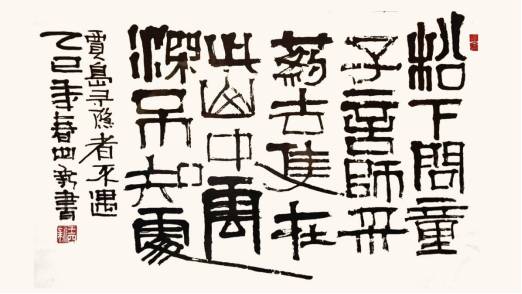 松下問童
子言師采
藥去隻在
此山中雲
深不知處
賈島尋隱者不遇
乙巳年春書